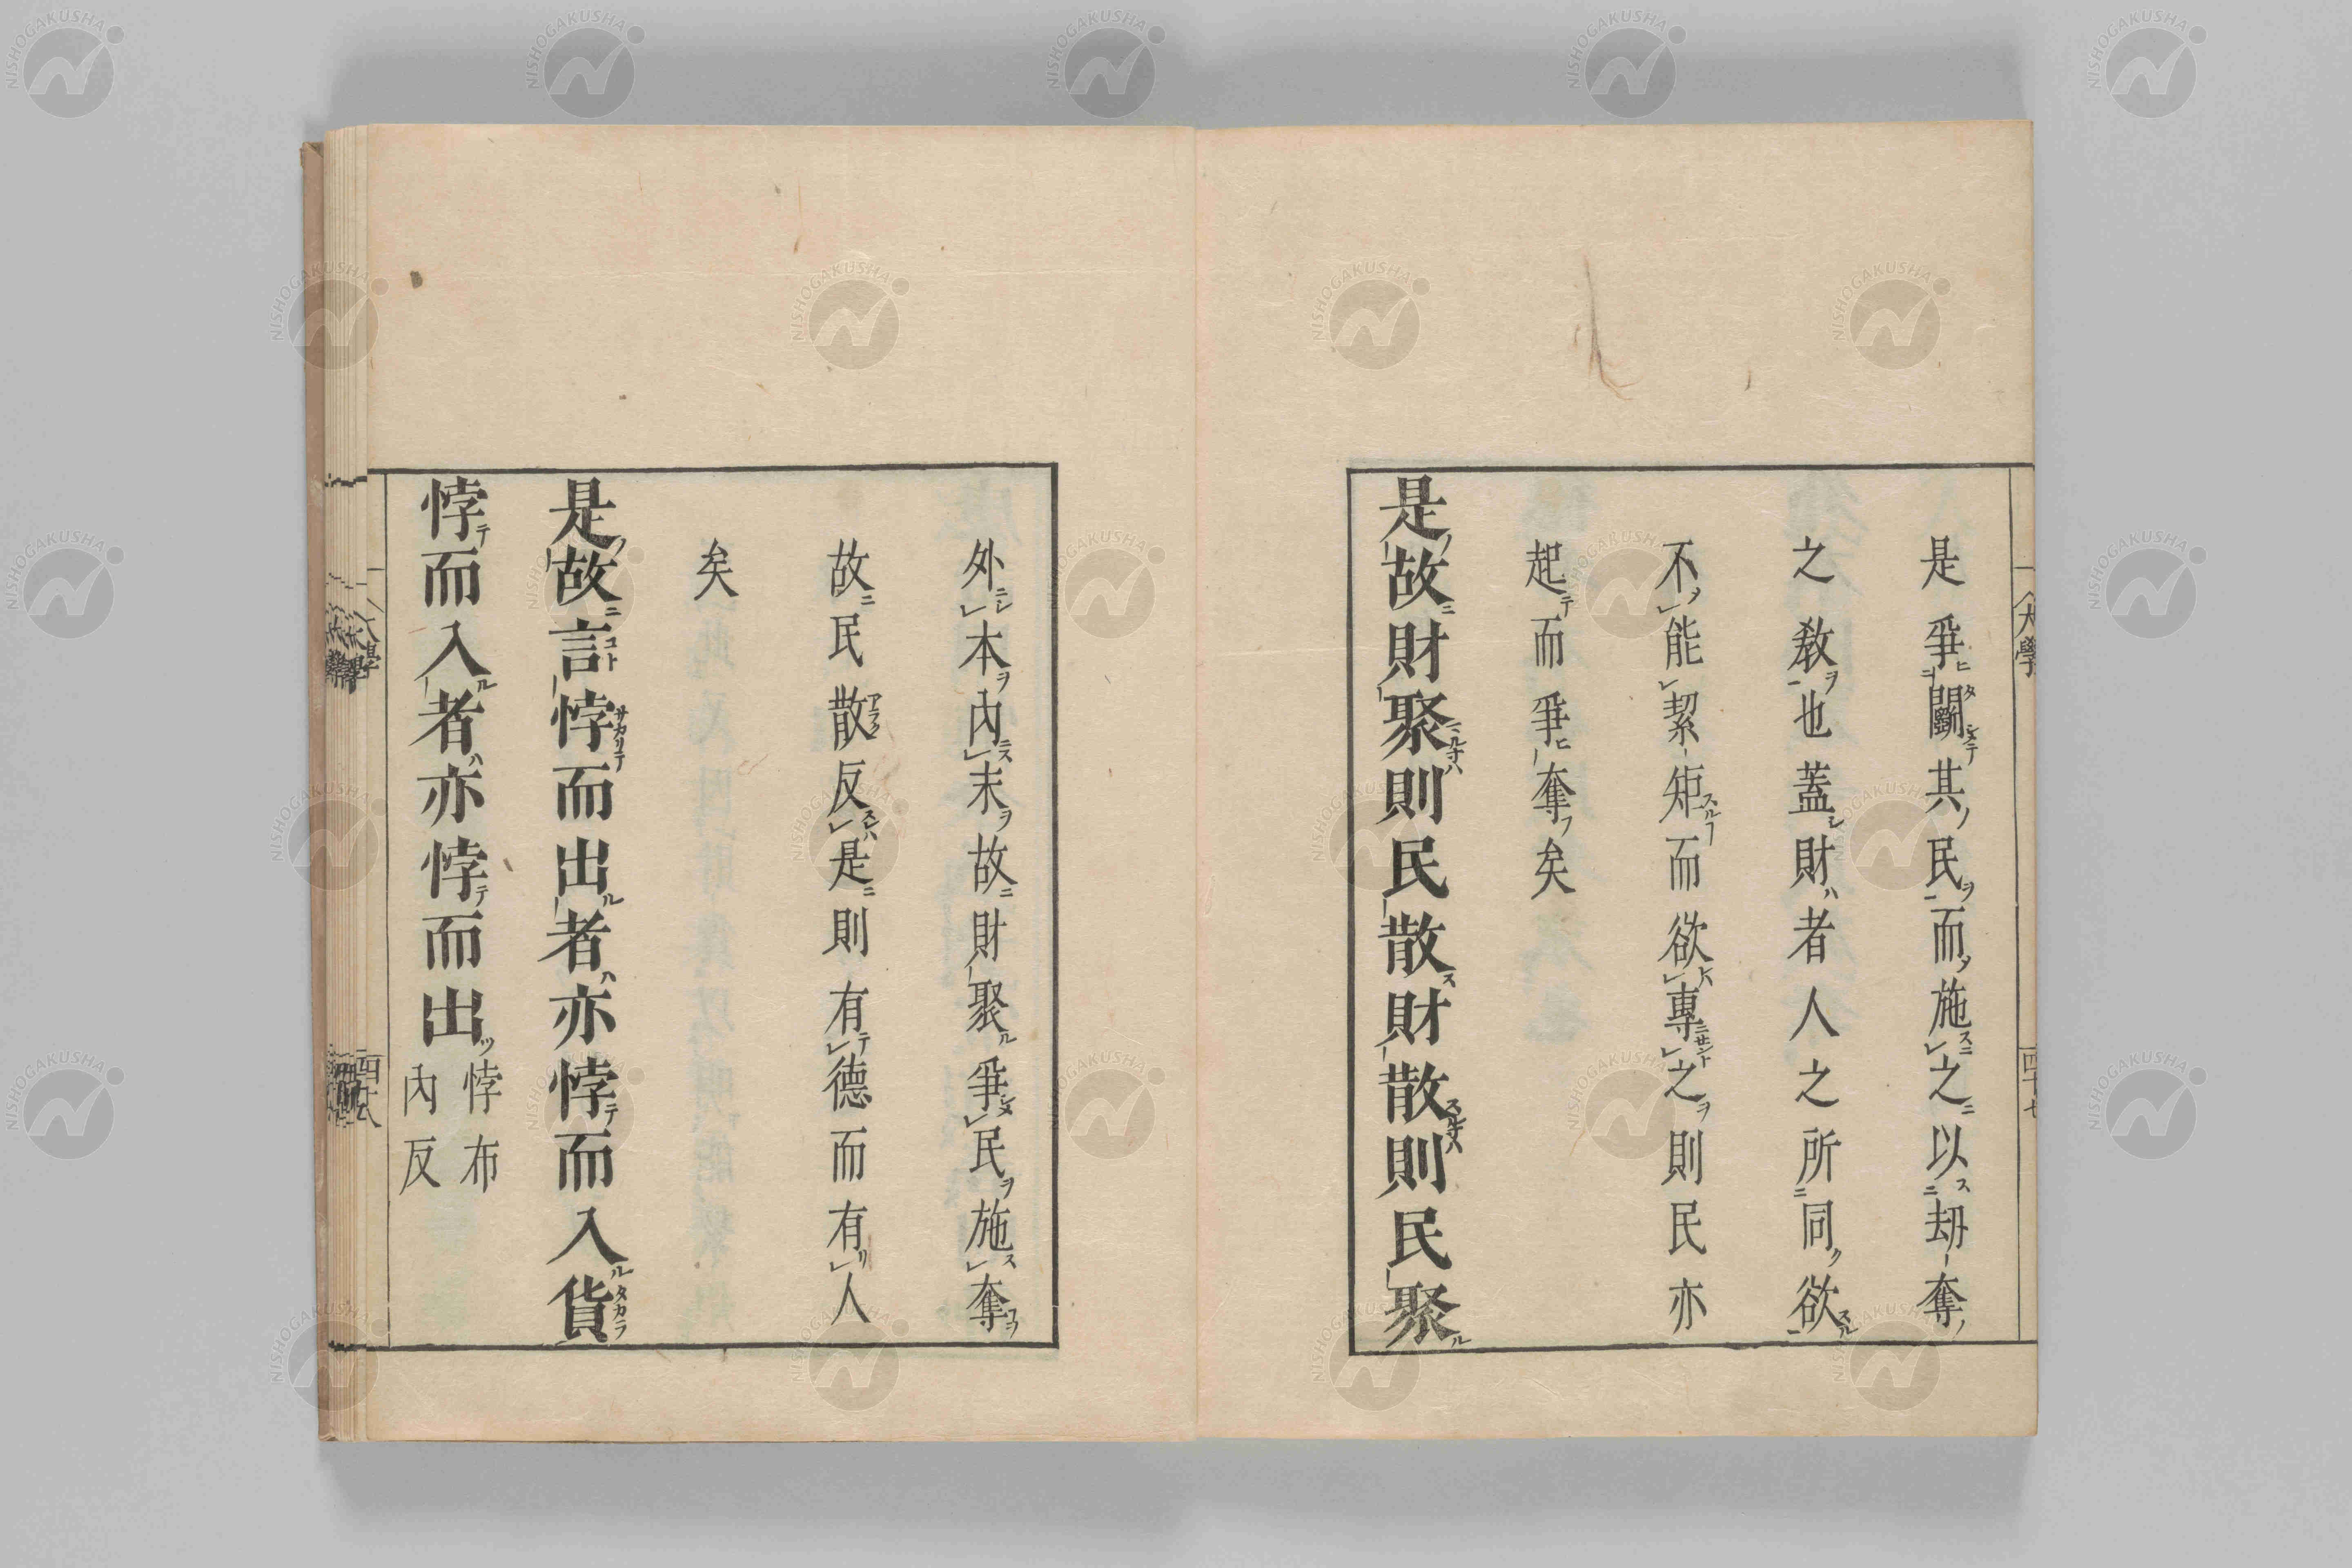 是爭鬭其民而施之以劫奪
之敎也蓋財者人之所同欲
不能絜矩而欲專之則民亦
起而爭奪矣
是故財聚則民散財散則民聚
外本內末故財聚爭民施奪
故民散反是則有德而有人
矣
是故言悖而出者亦悖而入貨
悖而入者亦悖而出悖布
內反
大學
四十七
NISHOGAKUSHA